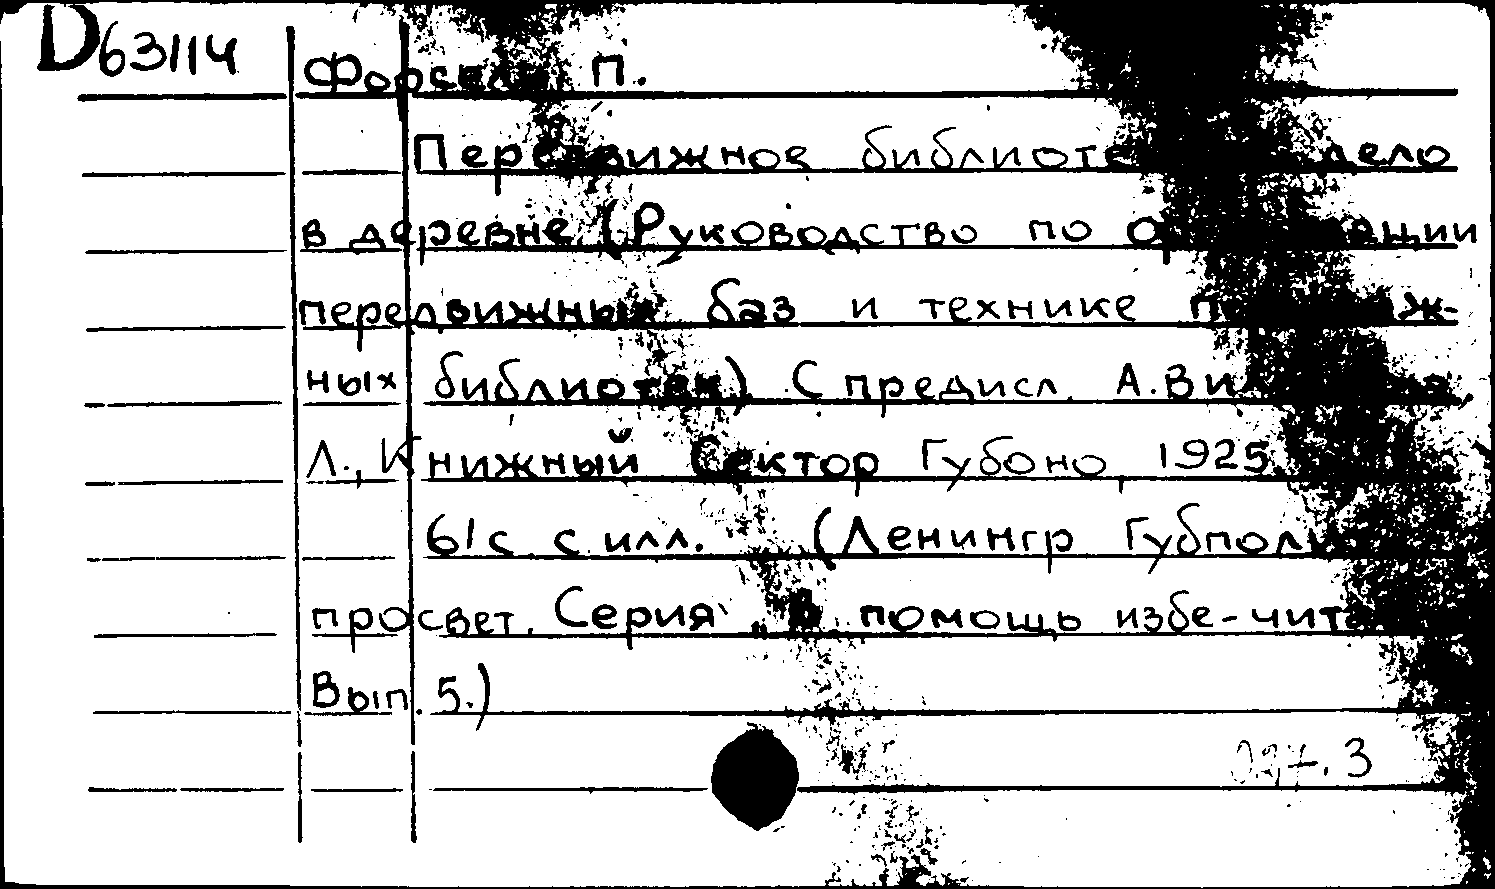 D63114
П.
Передвижное дело
в деревне (Руководство по
передвижных баз и технике
ных библиотек) С предисл. А.
Л., Книжный Сектор Губоно, 1925
61 с. с илл. (Ленингр Губполит
просвет. Серия „В помощь избе-чит
Вып. 5.)